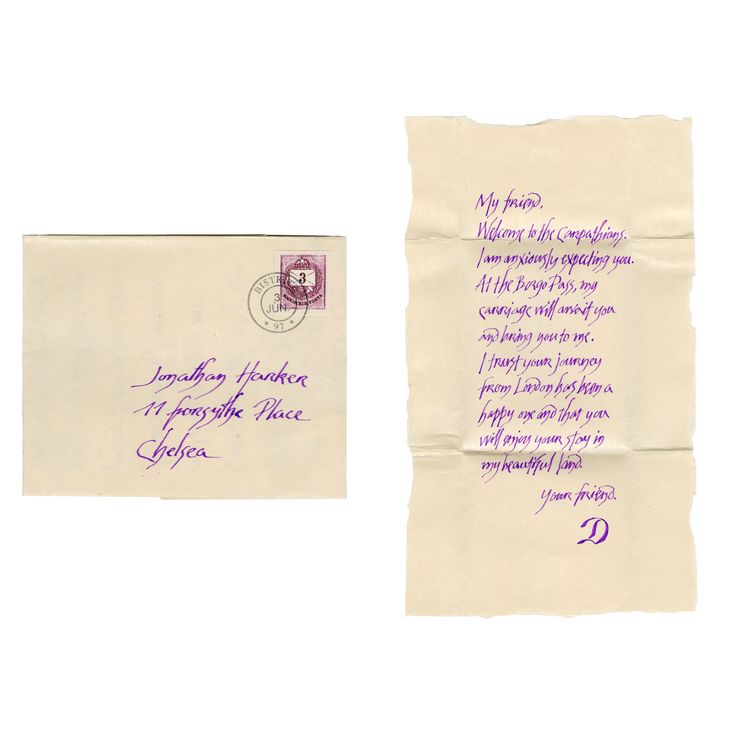 3
BISTR
3
JUN
97
Jonathan Harker
11 Forsythe Place
Chelsea
My friend,
Welcome to the Carpathians.
I am anxiously expecting you.
At the Borgo Pass, my
carriage will await you
and bring you to me.
I trust your journey
from London has been a
happy one and that you
will enjoy your stay in
my beautiful land.
Your friend,
D